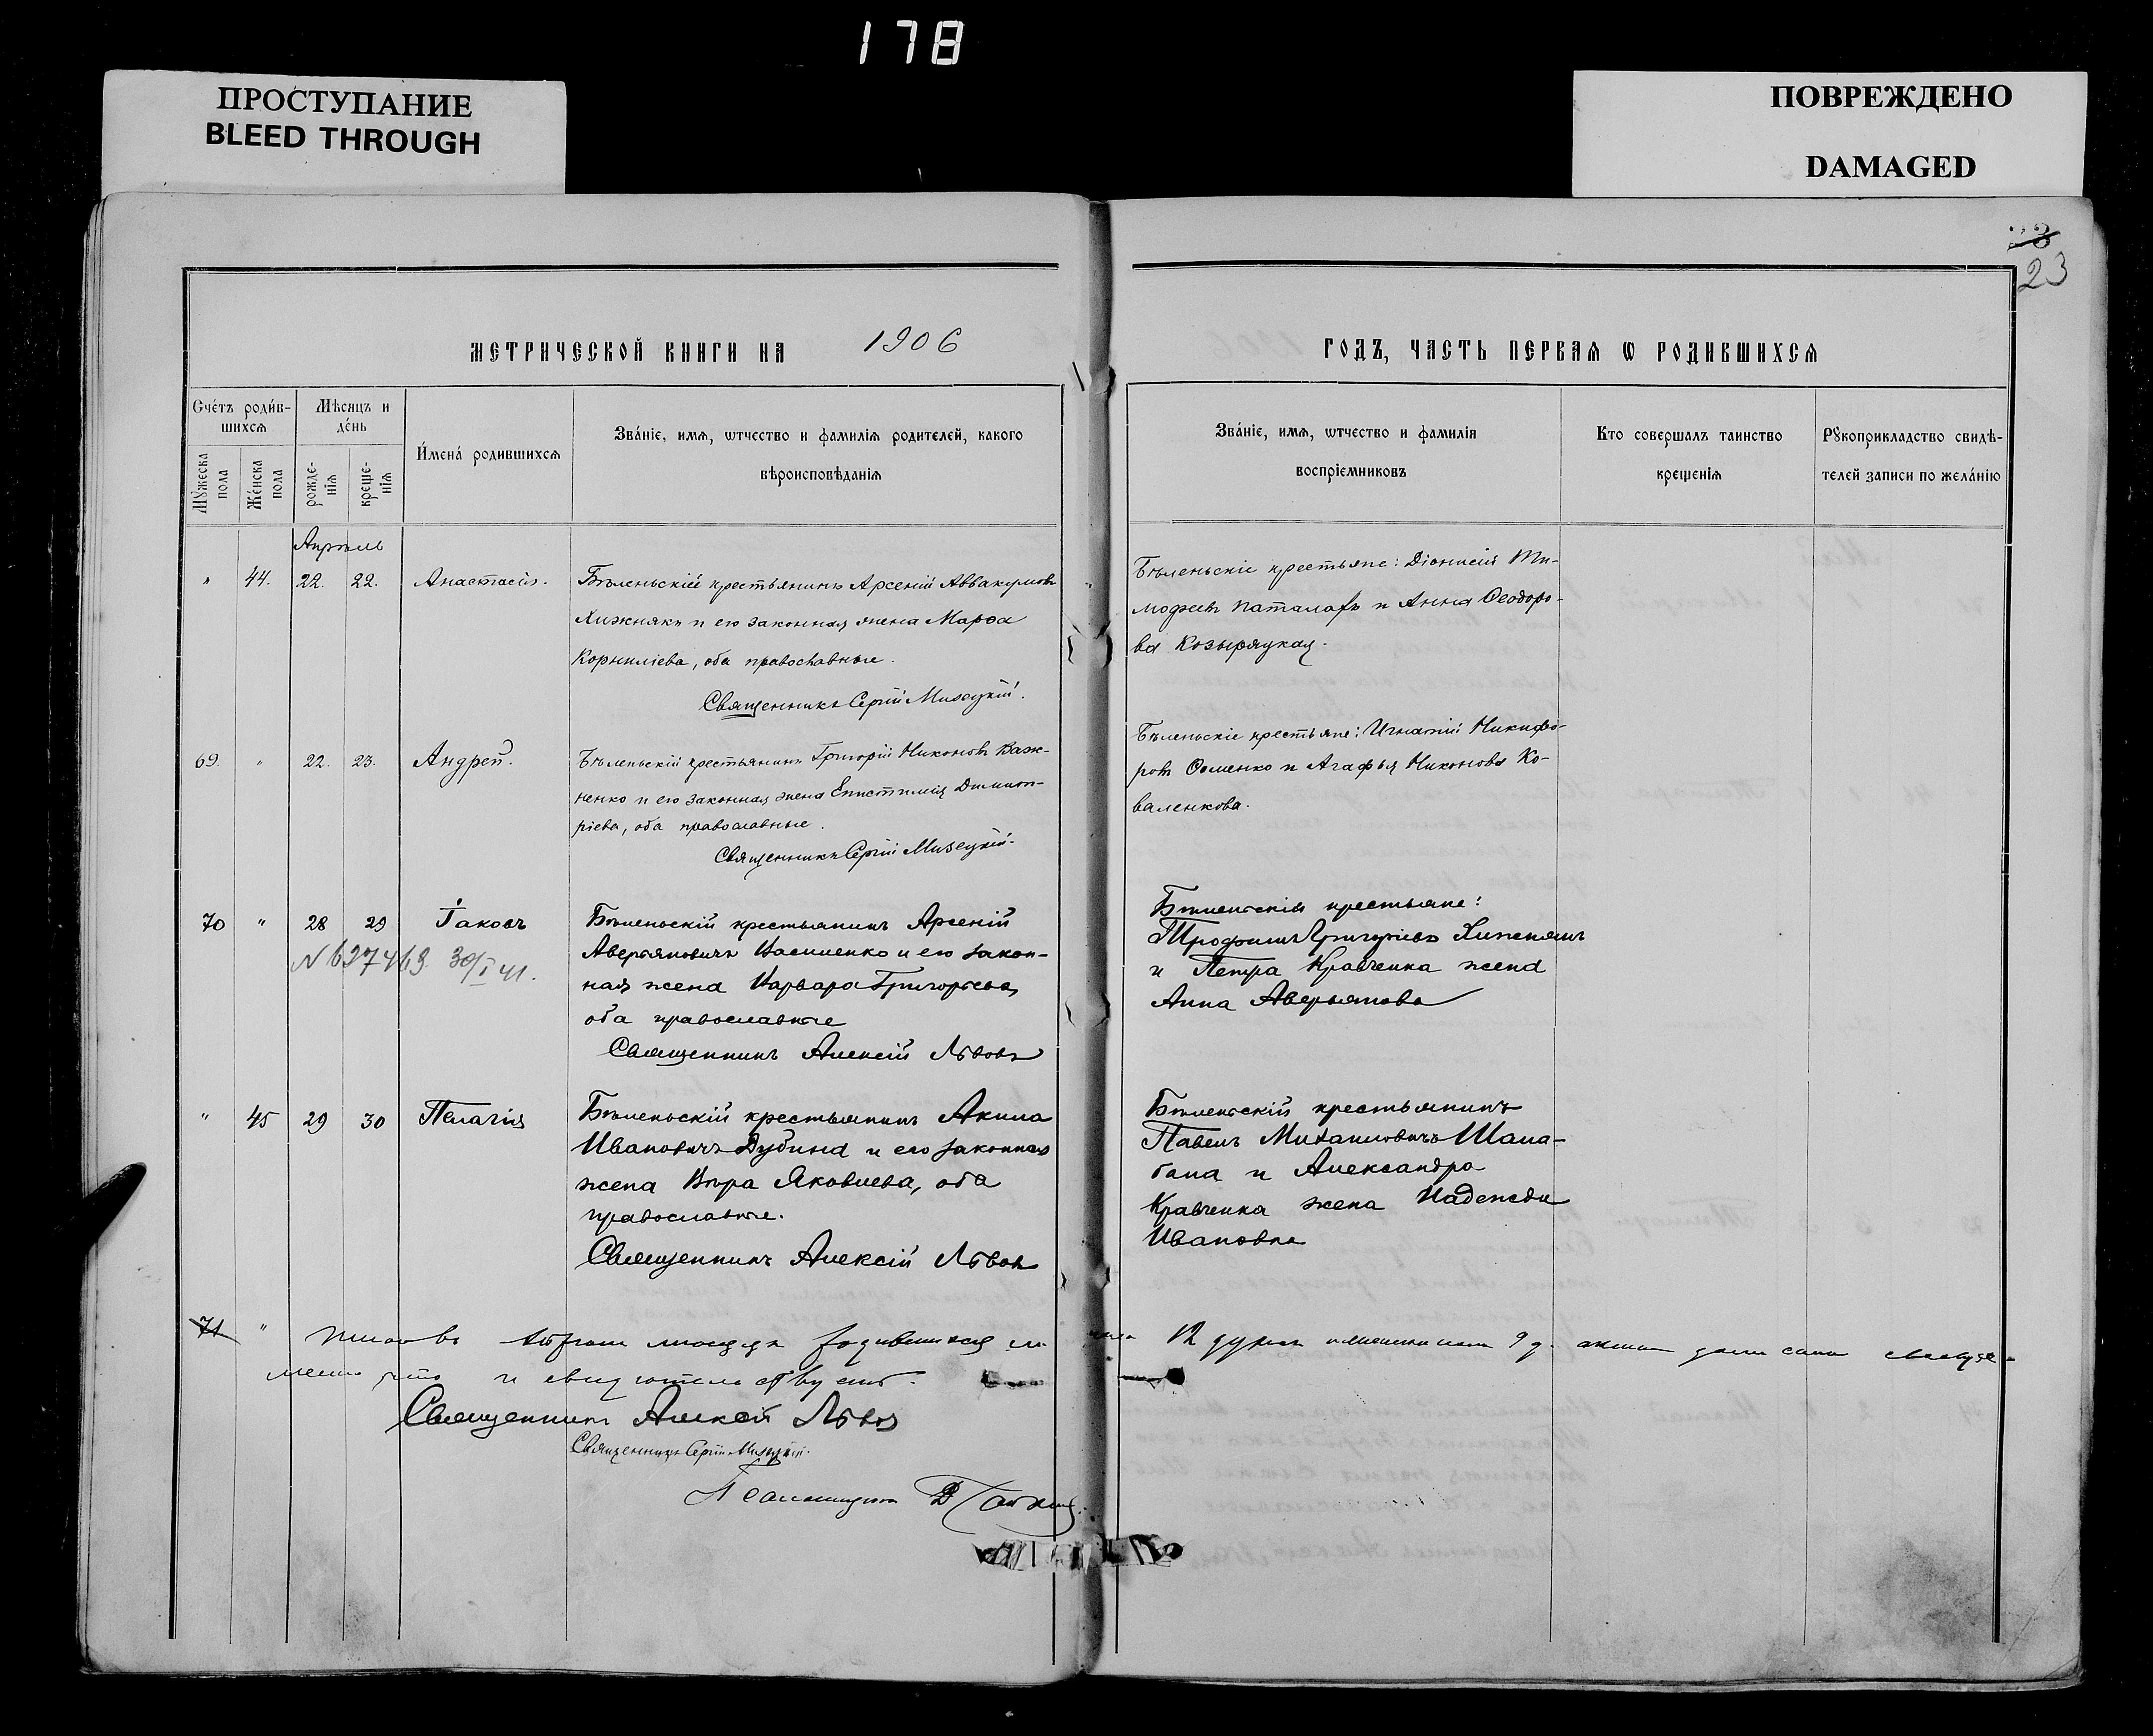 178
ПРОСТУПАНИЕ
BLEED THROUGH
ПОВРЕЖДЕНО
DAMAGED
23
МЕТРИЧЕСКОЙ КНИГИ НА 1906
ГОДЪ, ЧАСТЬ ПЕРВАЯ Ѡ РОДИВШИХСѦ
Сче́тъ роди́в-
шихсѧ
Мѣсяцъ и
де́нь
Мꙋ́жеска
пола
Же́нска
пола
рожде-
нія
креще-
нія
И́мена́ родившихсѧ
Зва́ніе, имѧ, ѡтчество и фамилія родителей, какого
вѣроисповѣданія
Зва́ніе, имѧ, ѡтчество и фамилія
воспріемниковъ
Кто совершалъ таинство
крещенія
Рꙋкоприкладство свидѣ-
телей записи по жела́нію
Апрѣль
" 44. 22. 22. Анастасія.
Бѣленьскій крестьянинъ Арсеній Аввакумовъ
Хижнякъ и его законная жена Марѳа
Корниліева, оба православные.
Священникъ Сергій Мизецкій.
Бѣленьскіе крестьяне: Діонисій Ти-
мофеевъ Паталахъ и Анна Ѳеодоро-
ва Козыряцкая.
69. " 22. 23. Андрей.
Бѣленьскій крестьянинъ Григорій Никоновъ Важ-
ненко и его законная жена Епистимія Димит-
ріева, оба православные.
Священникъ Сергій Мизецкій.
Бѣленьскіе крестьяне: Игнатій Никифо-
ровъ Ѳоменко и Агафья Никонова Ко-
валенкова.
70 " 28 29 Іаковъ
N 627469. 30/I 41.
Бѣленьскій крестьянинъ Арсеній
Аверьяновичъ Василенко и его закон-
ная жена Варвара Григорьева,
оба православные
Священникъ Алексій Львовъ
Бѣленьскія крестьяне:
Трофимъ Григорьевъ Хижнякъ
и Петра Кравченка жена
Анна Аверьянова
" 45 29 30 Пелагія
Бѣленьскій крестьянинъ Акила
Ивановичъ Дубина и его законная
жена Вѣра Яковлева, оба
православные.
Священникъ Алексій Львовъ
Бѣленьскій крестьянинъ
Павелъ Михаиловичъ Шала-
бана и Александра
Кравченка жена Надежда
Ивановна
71 "
родившихся
12
и свидѣтельствуетъ.
Священникъ Алексій Львовъ
Священникъ Сергій Мизецкій.
Псаломщикъ